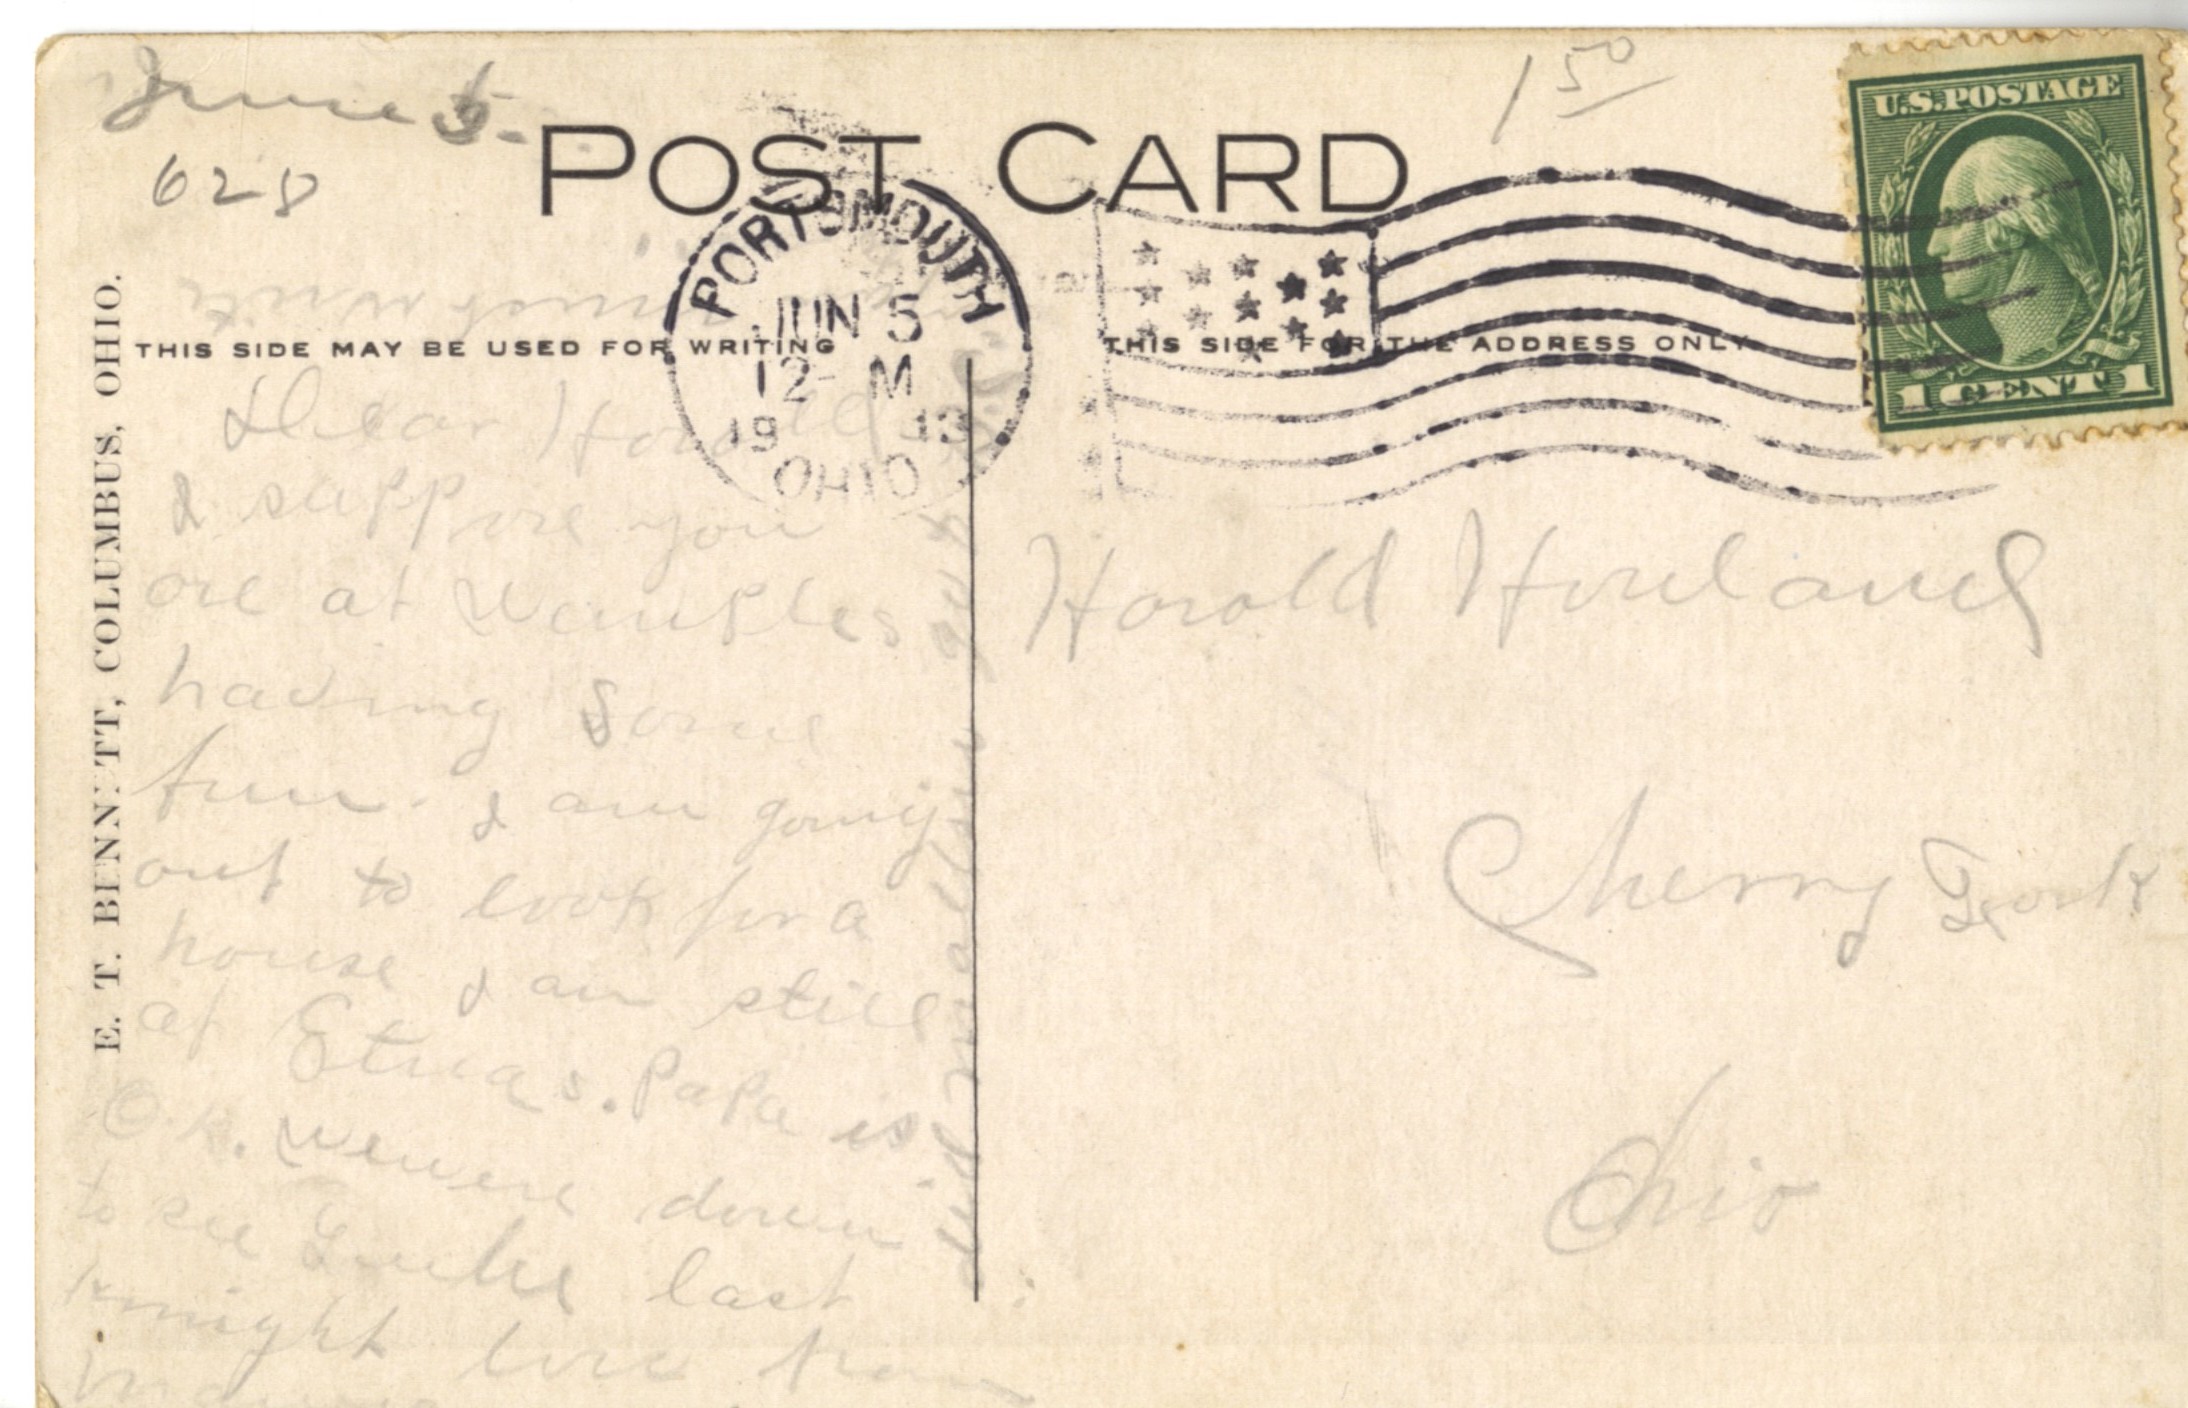 June 5.
628
1 50
POST CARD
U.S. POSTAGE
1 CENT 1
PORTSMOUTH
JUN 5
12 - M
19 13
OHIO
THIS SIDE MAY BE USED FOR WRITING
THIS SIDE FOR THE ADDRESS ONLY
E. T. BENNETT, COLUMBUS, OHIO.
Dear Horold
I suppose you
are at
having some
fun. I am going
out to look for a
house I am still
at Etnas. Papa is
O.K. we were down
to see last
knight love from
Horold Howland
Cherry Fork
Ohio